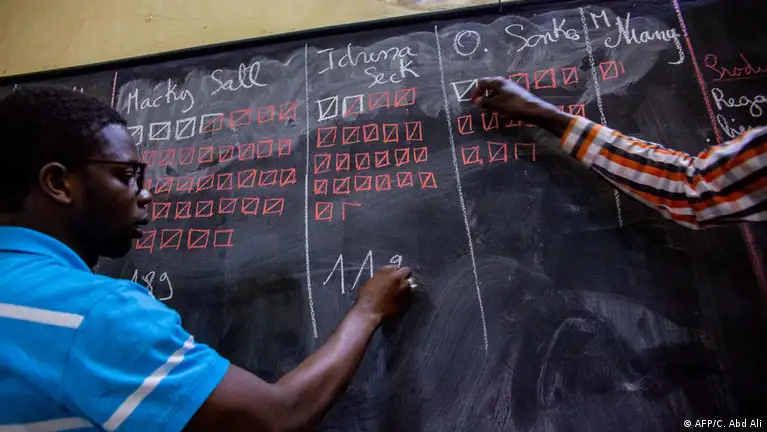 Macky Sall
Idrissa
Seck
O. Sonko
M
Niang
189
119
© AFP/C. Abd Ali